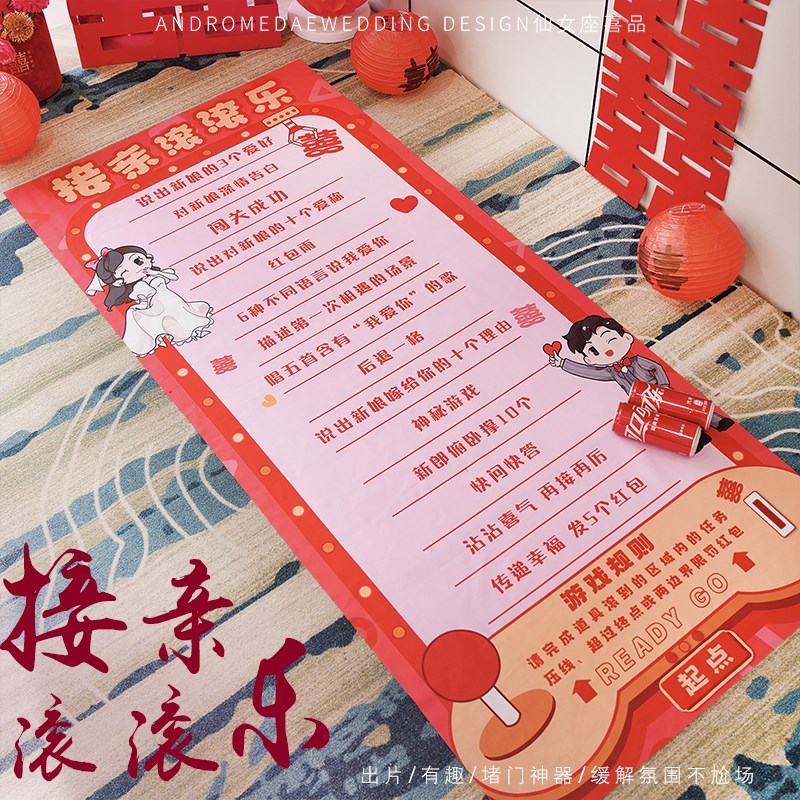 ANDROMEDAEWEDDING DESIGN仙女座喜品
接亲滚滚乐
囍
说出新娘的3个爱好
对新娘深情告白
闯关成功
说出对新娘的十个爱称
红包雨
6种不同语言说我爱你
描述第一次相遇的场景
唱五首含有“我爱你”的歌
后退一格
说出新娘嫁给你的十个理由
神秘游戏
新郎俯卧撑10个
快问快答
沾沾喜气 再接再厉
传递幸福 发5个红包
囍
囍
囍
游戏规则
请完成道具滚到的区域内的任务
压线、超过终点或两边界限罚红包
READY GO
起点
接亲
滚滚乐
出片/有趣/堵门神器/缓解氛围不尬场